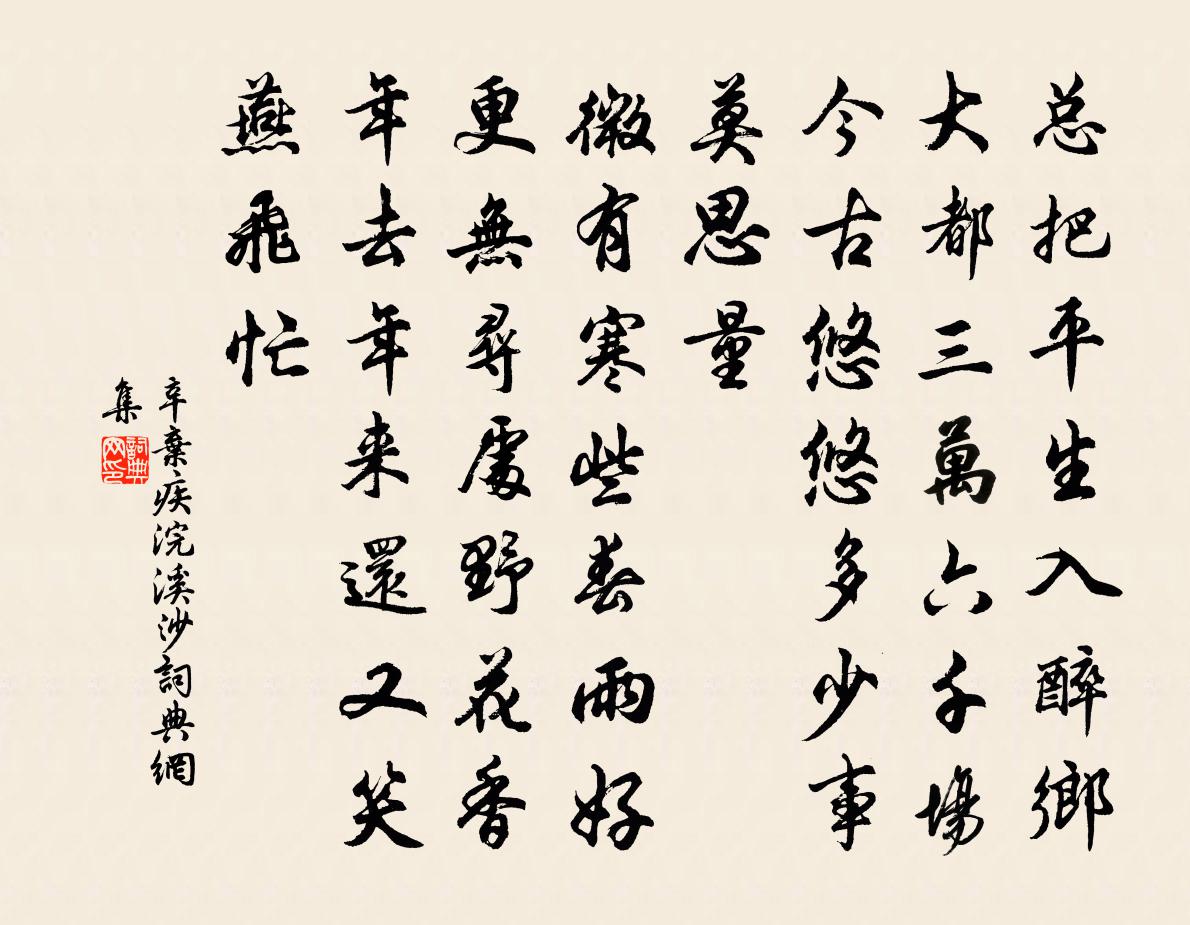 总把平生入醉鄉
大都三萬六千場
今古悠悠多少事
莫思量
微有寒些春雨好
更無尋處野花香
年去年来還又笑
燕飛忙
辛棄疾浣溪沙詞典網
集
詞典
网印